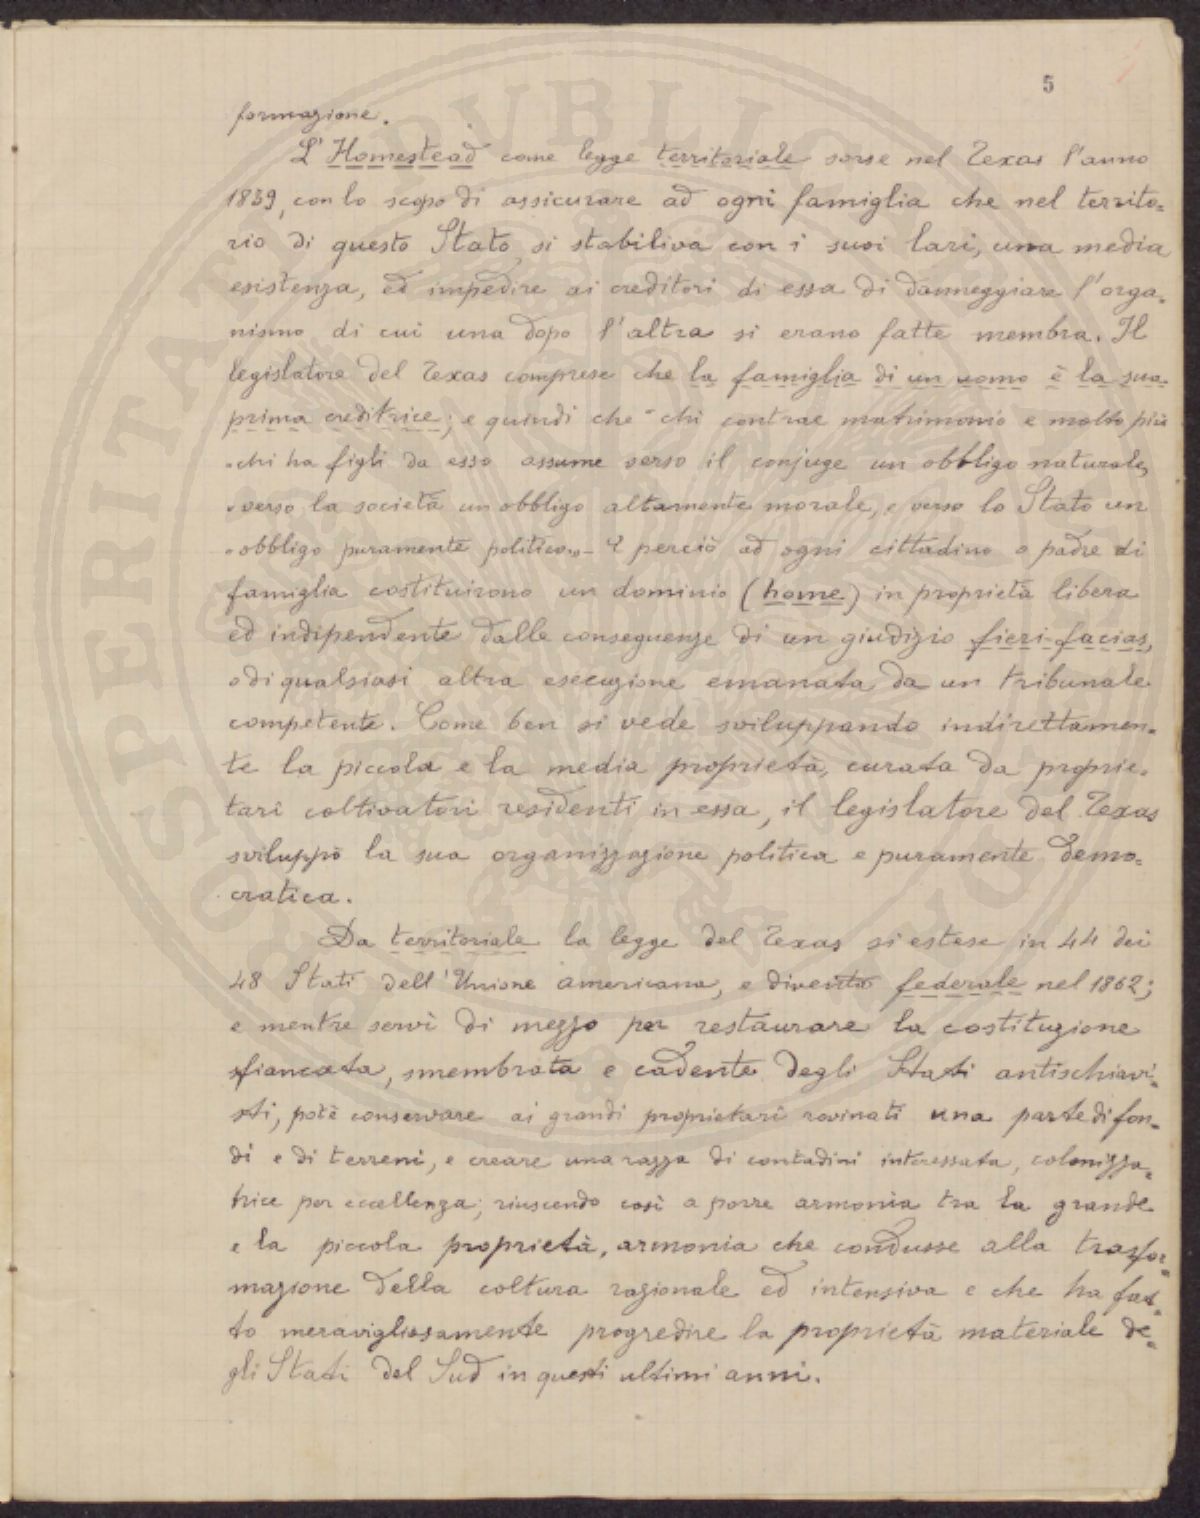 5
formazione.
L'Homestead come legge territoriale sorse nel Texas l'anno
1839, con lo scopo di assicurare ad ogni famiglia che nel territo=
rio di questo Stato si stabiliva con i suoi lari, una media
esistenza, ed impedire ai creditori di essa di danneggiare l'orga=
nismo di cui una dopo l'altra si erano fatte membra. Il
legislatore del Texas comprese che la famiglia di un uomo è la sua
prima creditrice; e quindi che "chi contrae matrimonio e molto più
"chi ha figli da esso assume verso il conjuge un obbligo naturale,
"verso la società un obbligo altamente morale, e verso lo Stato un
"obbligo puramente politico"- E perciò ad ogni cittadino o padre di
famiglia costituirono un dominio (home) in proprietà libera
ed indipendente dalle conseguenze di un giudizio fieri-facias,
o di qualsiasi altra esecuzione emanata da un tribunale
competente. Come ben si vede sviluppando indirettamen=
te la piccola e la media proprietà, curata da proprie=
tari coltivatori residenti in essa, il legislatore del Texas
sviluppò la sua organizzazione politica e puramente demo=
cratica.
Da territoriale la legge del Texas si estese in 44 dei
48 Stati dell'Unione americana, e diventò federale nel 1862;
e mentre servì di mezzo per restaurare la costituzione
sfiancata, smembrata e cadente degli Stati antischiavi=
sti, potè conservare ai grandi proprietari rovinati una parte di fon=
di e di terreni, e creare una razza di contadini interessata, colonizza=
trice per eccellenza; riuscendo così a porre armonia tra la grande
e la piccola proprietà, armonia che condusse alla trasfor=
mazione della coltura razionale ed intensiva e che ha fat=
to meravigliosamente progredire la proprietà materiale de=
gli Stati del Sud in questi ultimi anni.